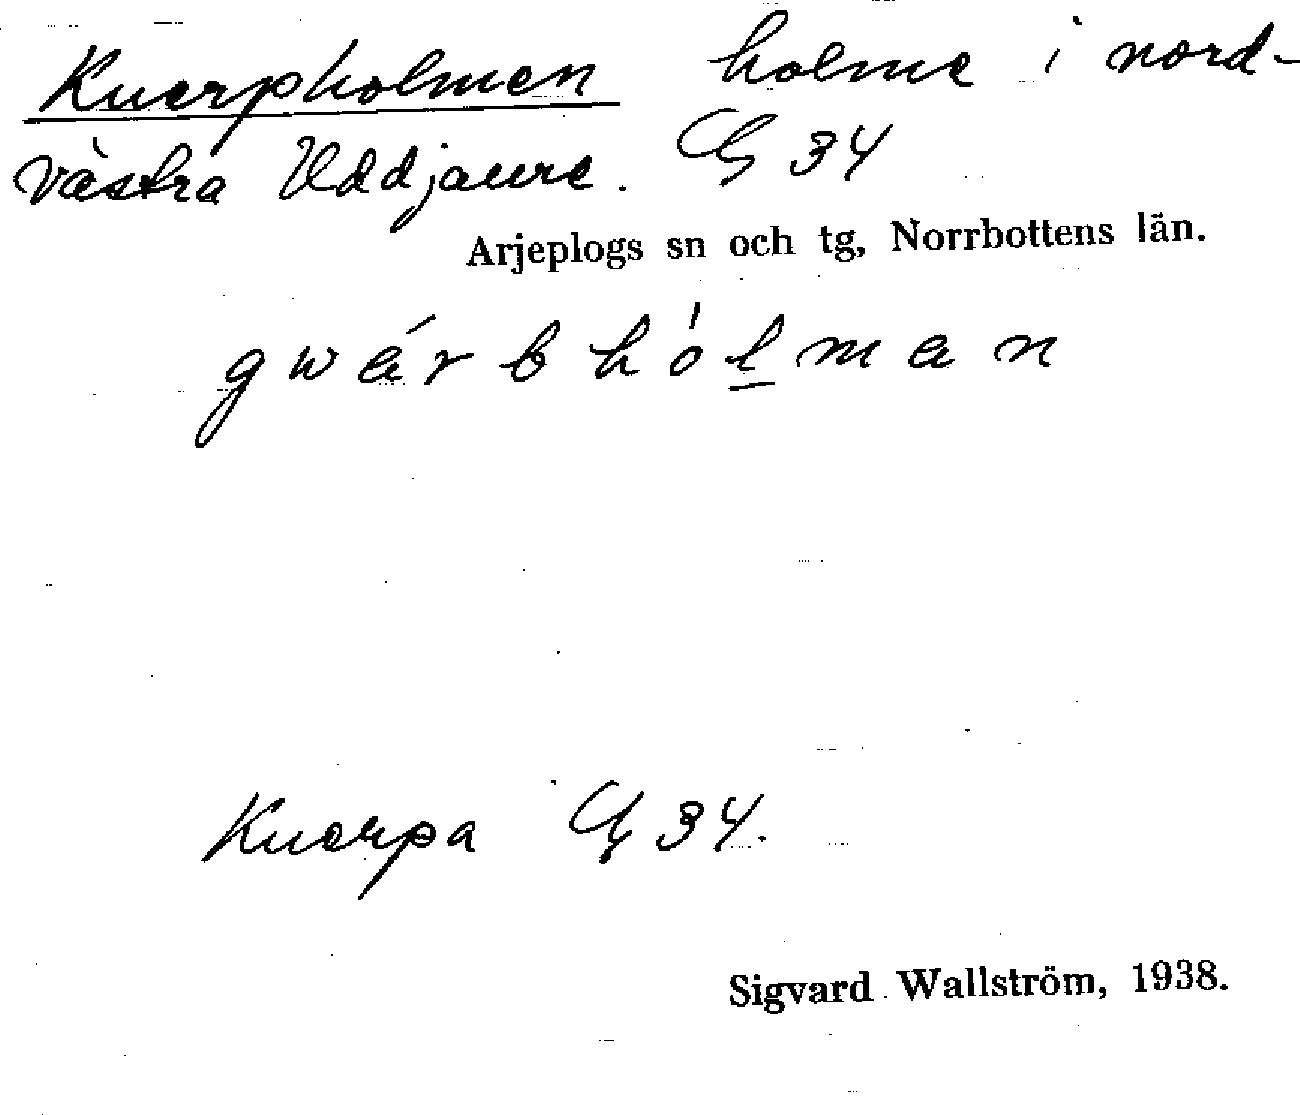 Kuerpholmen holme i nord-
västra Uddjaure. G 34
Arjeplogs sn och tg, Norrbottens län.
gwárbhólman
Kuerpa G 34.
Sigvard Wallström, 1938.